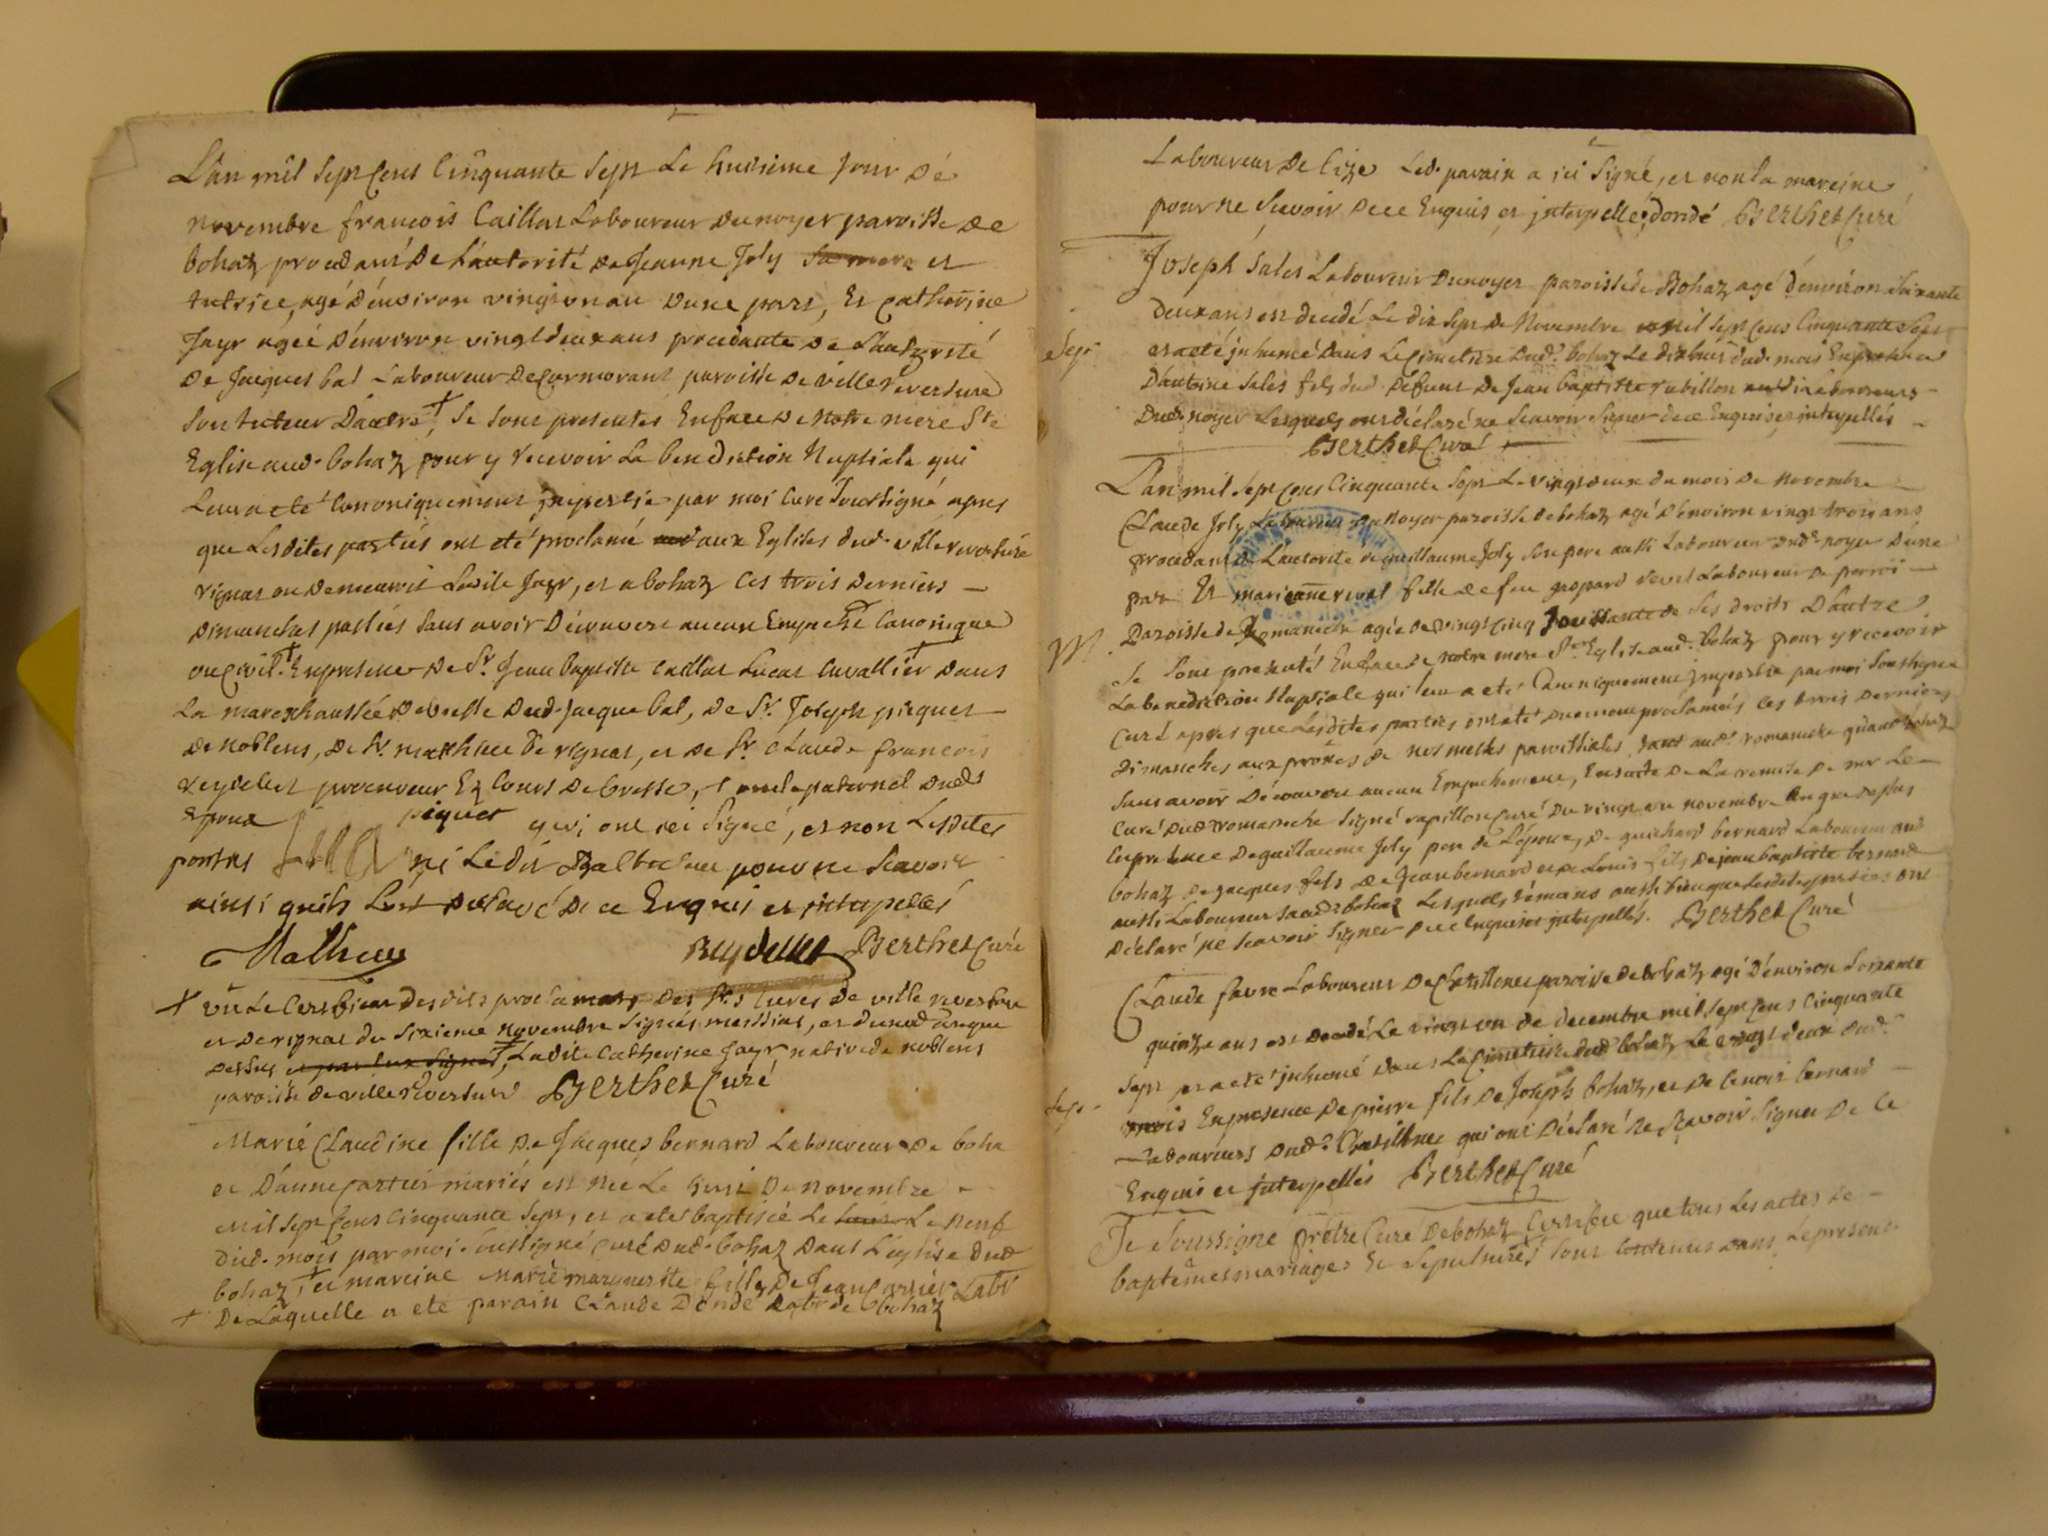 L'an mil sept cens cinquante sept le huitieme jour de
novembre francois Caillat Laboureur du noyer paroisse de
bohaz procedant de l'autorité de Jeanne Joly sa mere et
tutrice, agé d'environ vingt un an d'une part, Et Catherine
Jayr agée d'environ vingt deux ans procedante de l'autorité
de Jacques bal Laboureur de Cormorant paroisse de villereversure
son tuteur d'autre † se sont presentés En face de notre mere Ste
Eglise aud. bohaz pour y recevoir la benediction Nuptiale qui
leur a eté Canoniquement impartie par moi Curé soussigné apres
que lesdites parties ont eté proclamé aux Eglises dud. villereversure
rignat ou demeuroit ladite Jayr, et a bohaz ces trois derniers
dimanches passés sans avoir découvert aucun Empeche Canonique
ou Civil. † En presence de Sr. Jean baptiste Caillat Cavallier dans
la marechaussée de bresse dud. Jacque bal, de Sr. Joseph piquet
de noblens, de Sr. matthieu de rignat, et de Sr. Claude francois
reydellet procureur Ez Cours de bresse, oncle paternel dud
Epoux
piquet qui ont ici signé, et non lesdites
parties ni ledit bal pour ne scavoir
ainsi quils l'ont declaré de ce Enquis et interpellés
Mathieu Reydellet Berthet Curé
† vu le Certificat desdits proclamats des Srs Cures de villereversure
et de rignat du sixieme novembre signés messiat, et dunod
dessus et par eux signés †, Ladite Catherine Jayr native de noblens
paroisse de villereversure Berthet Curé
Marie Claudine fille de Jacques bernard Laboureur de boha
et d'anne Cartier mariés est née le huit de novembre
mil sept cens cinquante sept, et a eté baptisée le le neuf
dud. mois par moi soussigné curé dud. bohaz dans l'eglise dud
bohaz, † et mareine Marie marguerite fille de Jean Cartier Labr
† De Laquelle a eté parain Claude Dondé Labr de bohaz
Laboureur de Cize Led. parain a ici signé, et non la mareine
pour ne scavoir de ce Enquis et interpellé; dondé Berthet Curé
Joseph Sales Laboureur du noyer paroisse de Bohaz agé d'environ soixante
deux ans est decedé le dix sept de Novembre mil sept cens cinquante sept
Sept
et a eté inhumé dans le cimetiere dud. bohaz le dixhuit dud. mois En presence
d'antoine Sales fils dud. defunt de Jean baptiste rabillon laboureurs
dud. noyer lesquels ont déclaré ne scavoir signer de ce Enquis et interpellés
Berthet Curé
L'an mil sept cens cinquante sept le vingt deux du mois de novembre
Claude Joly Laboureur du Noyer paroisse de bohaz agé d'environ vingt trois ans
procedant de l'autorité de guillaume Joly son pere aussi Laboureur dud. noyer d'une
part Et marianne revel fille de feu gaspard revel Laboureur de
M.
Paroisse de Romaneche agée de vingt cinq Jouissante de ses droits d'autre
se sont presentés En face de notre mere Ste Eglise aud. bohaz pour y recevoir
la benediction Nuptiale qui leur a eté Canoniquement impartie par moi soussigné
Curé apres que lesdites parties ont eté duement proclamées ces trois derniers
dimanches aux prônes de nos messes paroissiales tant aud. romaneche qu'aud. bohaz
sans avoir découvert aucun Empechement, Ensuite de la remise de mr le
Curé dud. romaneche signé rapillon Curé du vingt un novembre an que dessus
En presence de guillaume Joly pere de l'epoux, de guichard bernard Laboureur aud
bohaz de jacques fils de Jean bernard et de Louis fils de jean baptiste bernard
aussi Laboureurs aud. bohaz lesquels témoins aussi bien que lesdites parties ont
déclaré ne scavoir signer de ce enquis et interpellés. Berthet Curé
Claude favre Laboureur de Chatillonet paroisse de bohaz agé d'environ soixante
quinze ans est decedé le vingt un de decembre mil sept cens cinquante
sept et a eté inhumé dans le Cimetiere dud. bohaz le vingt deux dud.
Sept.
mois En presence de pierre fils de Joseph bohaz, et de benoit bernard
Laboureurs dud. Chatillonet qui ont déclaré ne scavoir signer de ce
Enquis et interpellés Berthet Curé
Je soussigné prêtre Curé de bohaz Certifie que tous les actes de
baptêmes mariages et sepultures sont contenus dans le present